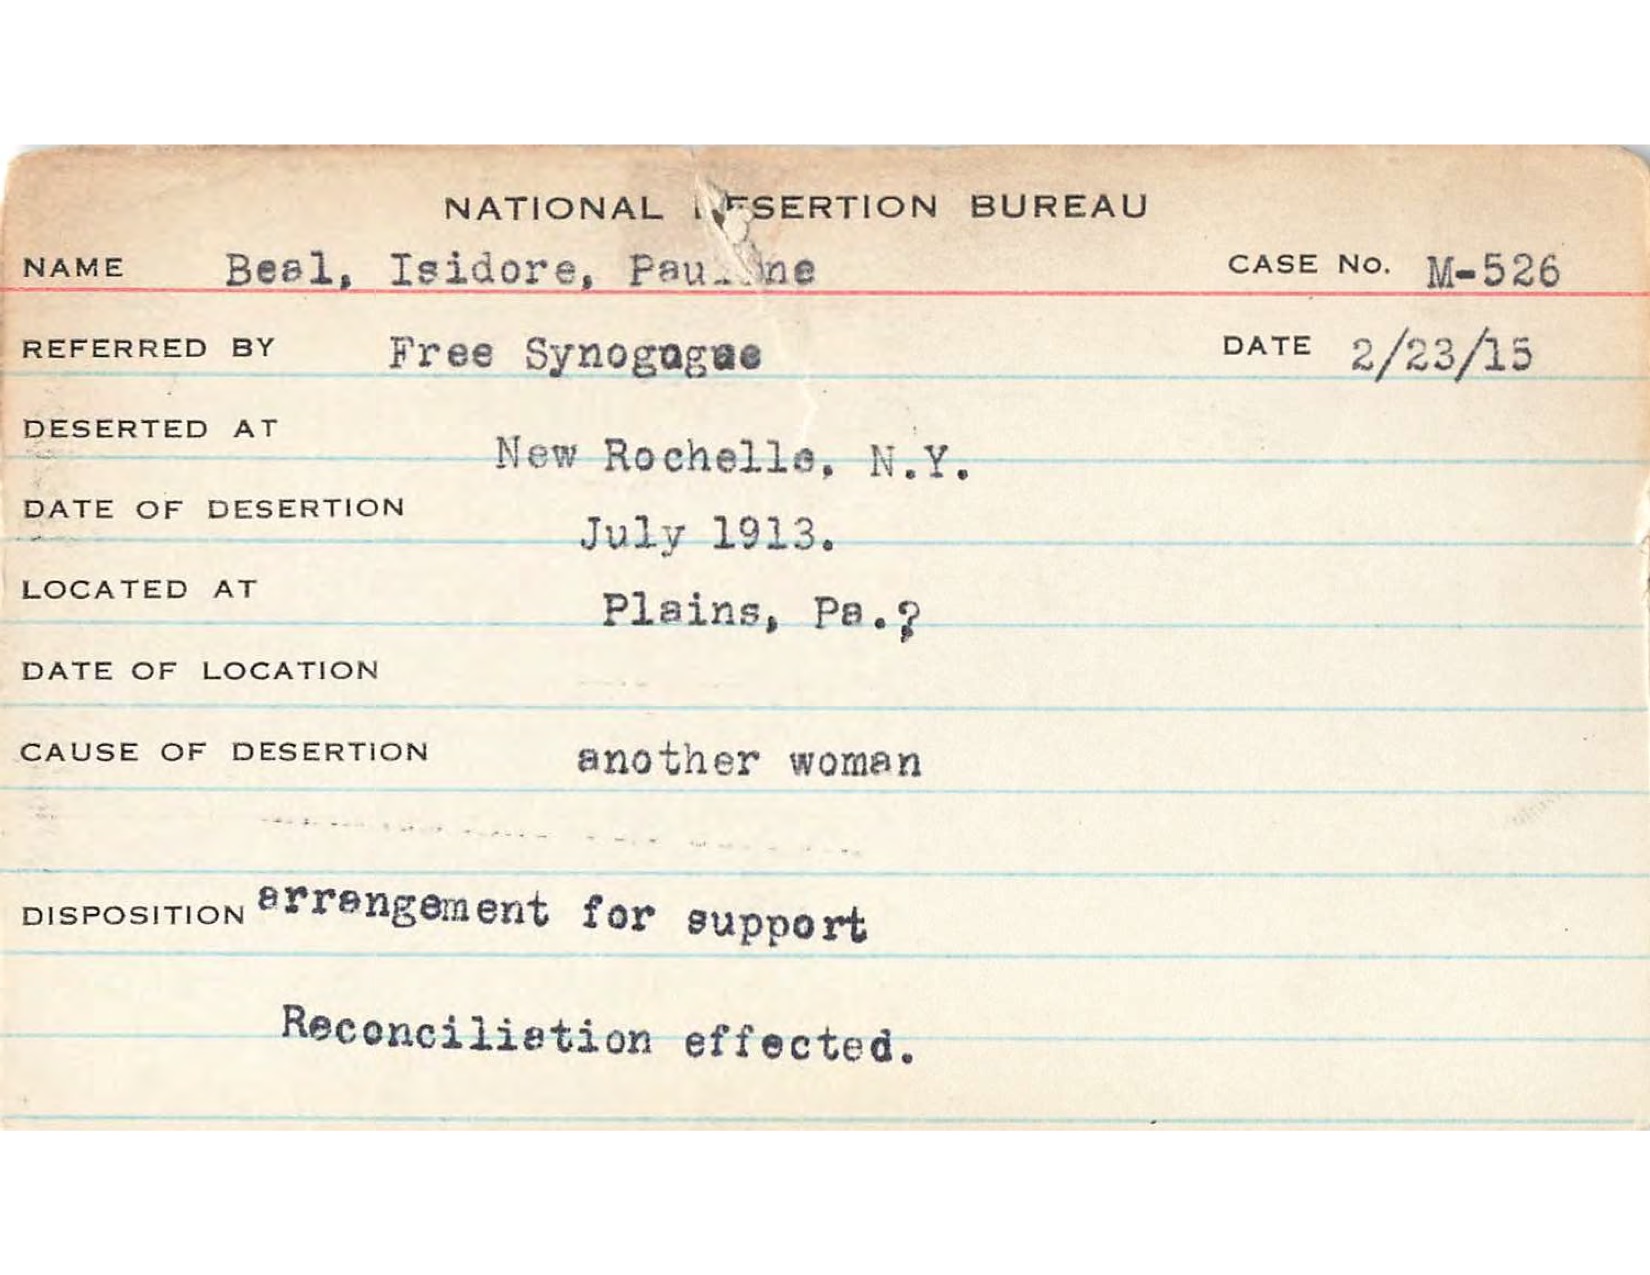 NATIONAL DESERTION BUREAU
NAME Beal, Isidore, Pauline CASE No. M-526
REFERRED BY Free Synogogue DATE 2/23/15
DESERTED AT New Rochelle, N.Y.
DATE OF DESERTION July 1913.
LOCATED AT Plains, Pa.?
DATE OF LOCATION
CAUSE OF DESERTION another woman
DISPOSITION arrangement for support
Reconciliation effected.